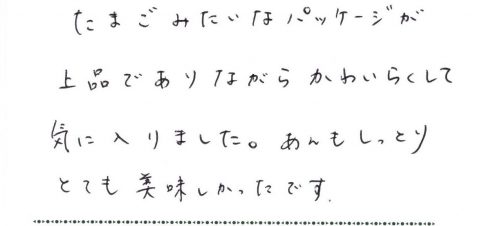 たまごみたいなパッケージが
上品でありながらかわいらくして
気に入りました。あんもしっとり
とても美味しかったです.